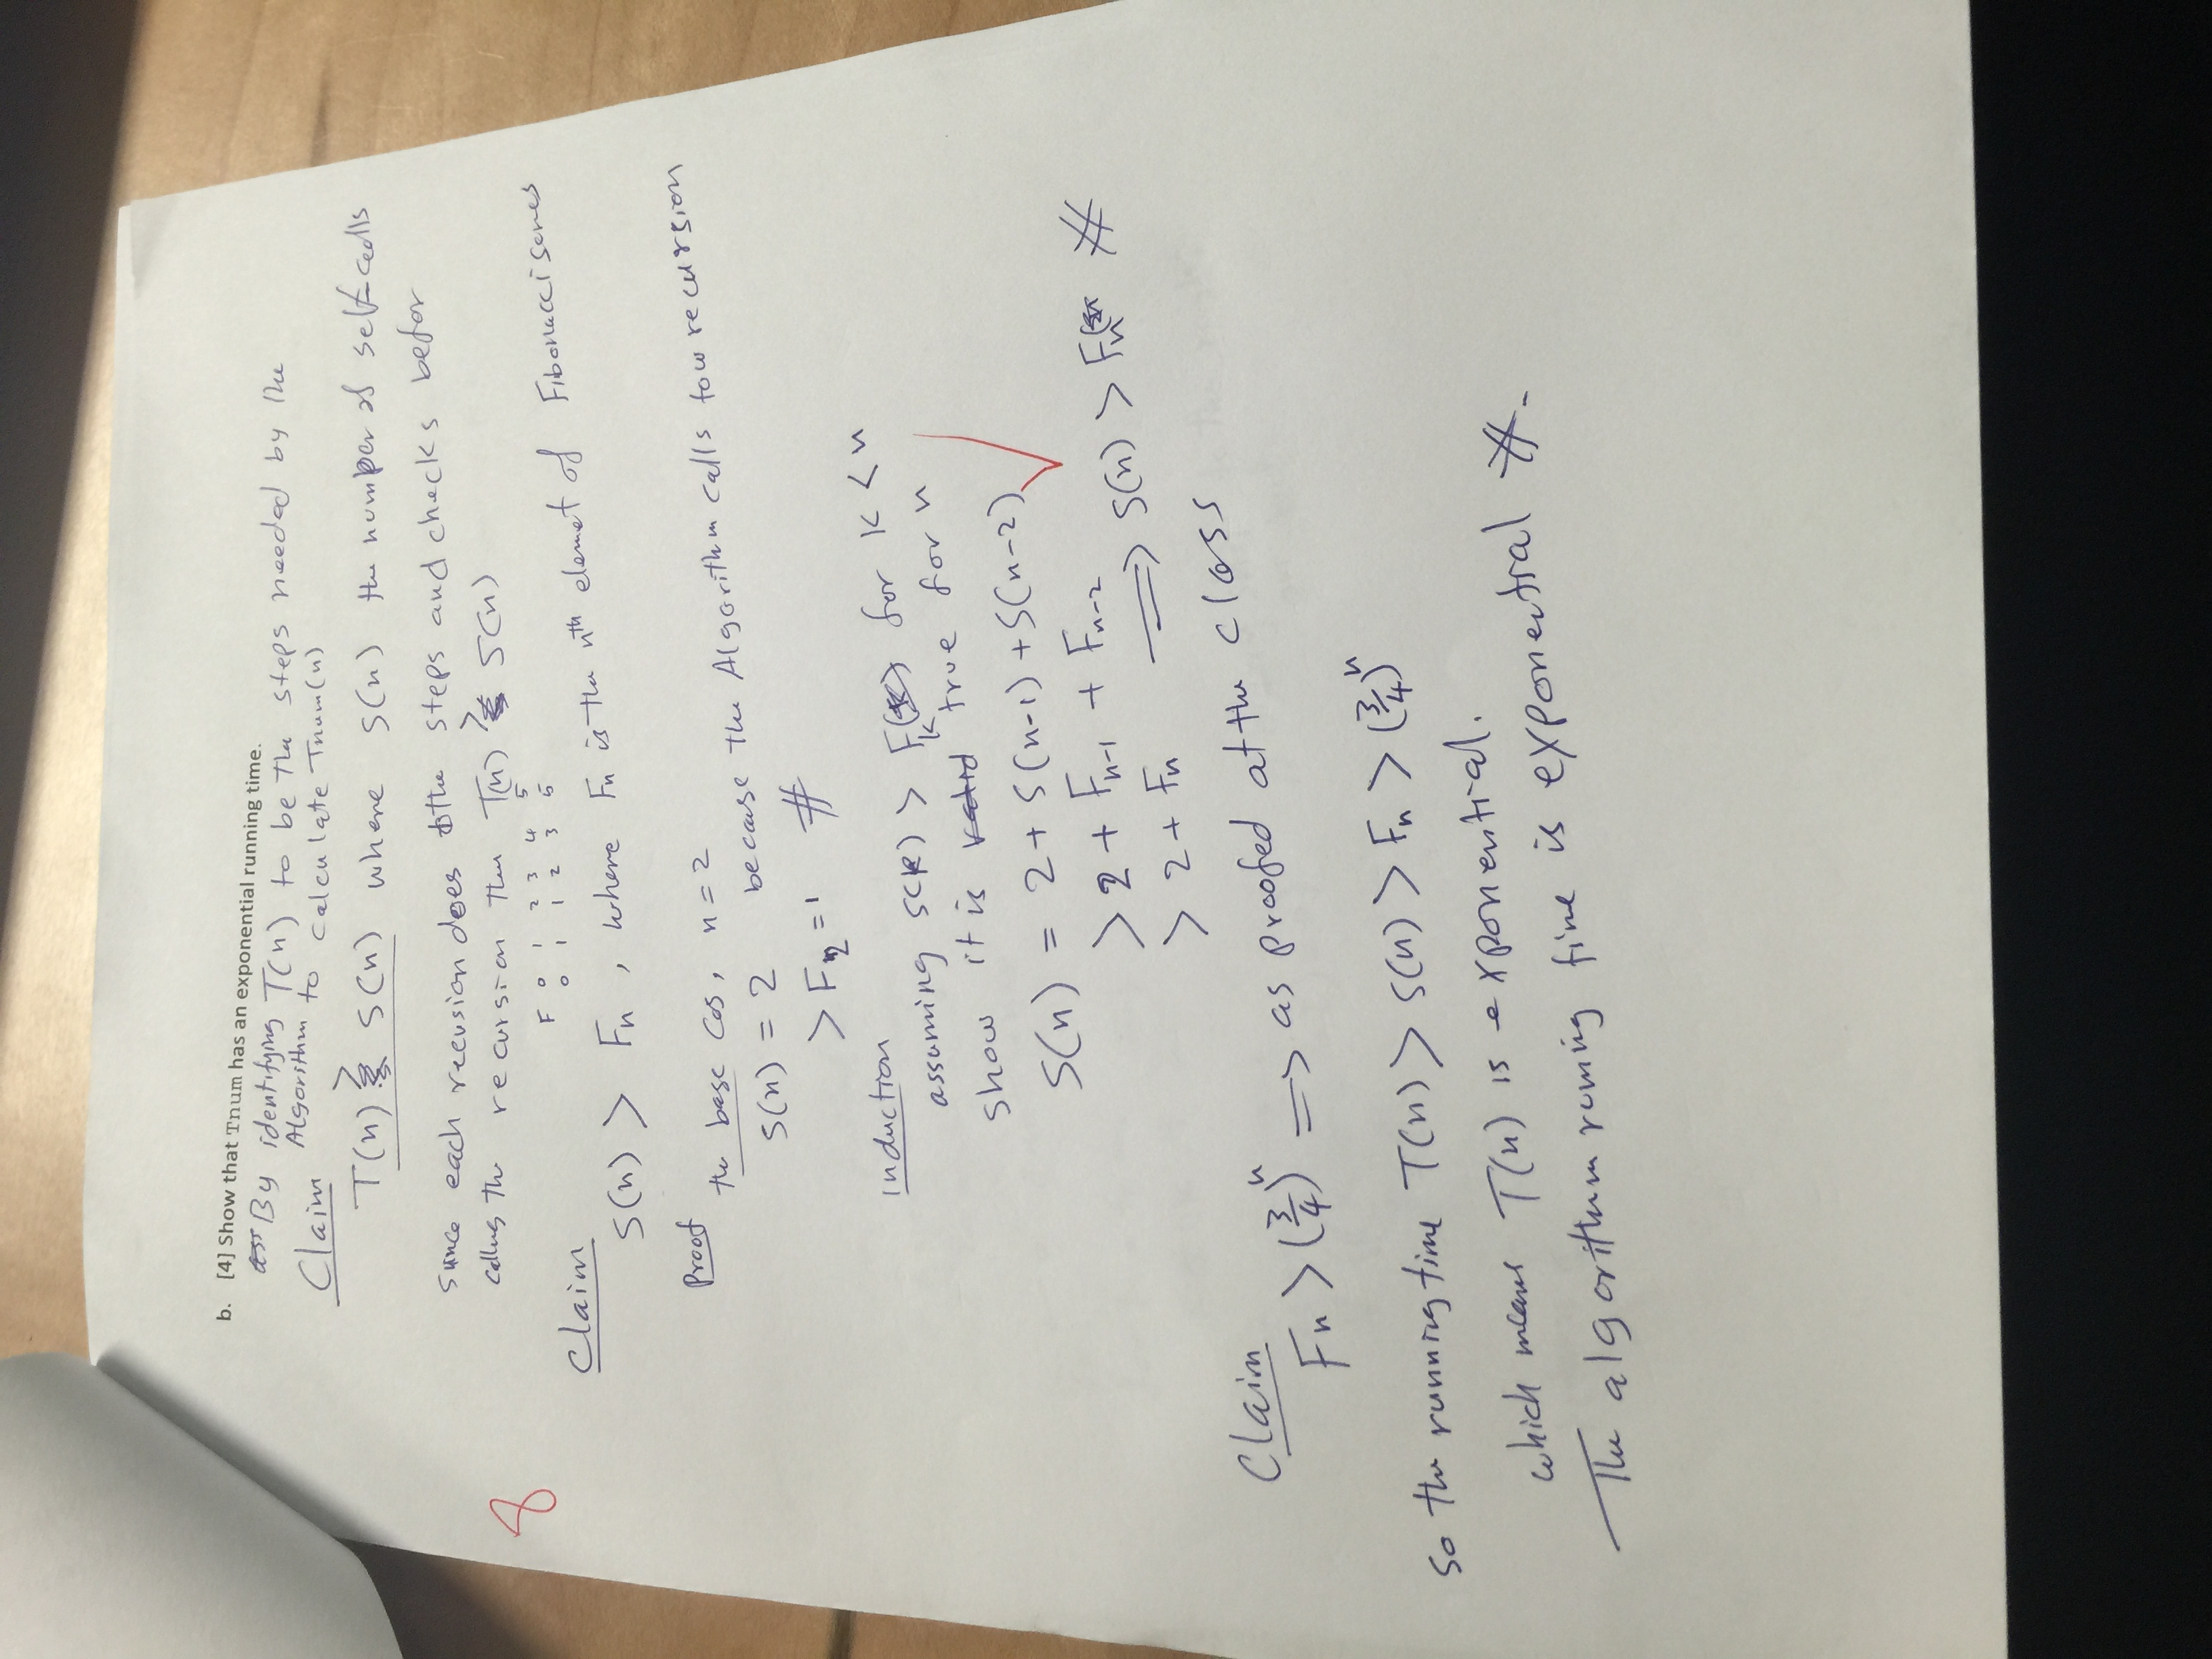 b. [4] Show that Tnum has an exponential running time.
By identifying T(n) to be the steps needed by the
Algorithm to calculate Tnum(n)
Claim
T(n) > S(n) where S(n) the number of self-calls
sunce each recusion does the steps and checks befor
calling the recursion then T(n) > S(n)
F 0 1 2 3 4 5
0 1 1 2 3 5
Claim
S(n) > Fn , where Fn is the nth elemet of Fibonacci series
Proof
the base cas, n = 2
S(n) = 2 because the Algorithm calls tow recursion
> F2 = 1 #
induction
assuming S(k) > Fk for k < n
show it is valid true for n
S(n) = 2 + S(n-1) + S(n-2)
> 2 + Fn-1 + Fn-2
> 2 + Fn ⟹ S(n) > Fn #
8
Claim
Fn > (3/4)^n ⟹ as proofed at the class
So the running time T(n) > S(n) > Fn > (3/4)^n
which means T(n) is exponential.
The algorithum runing time is exponential #.